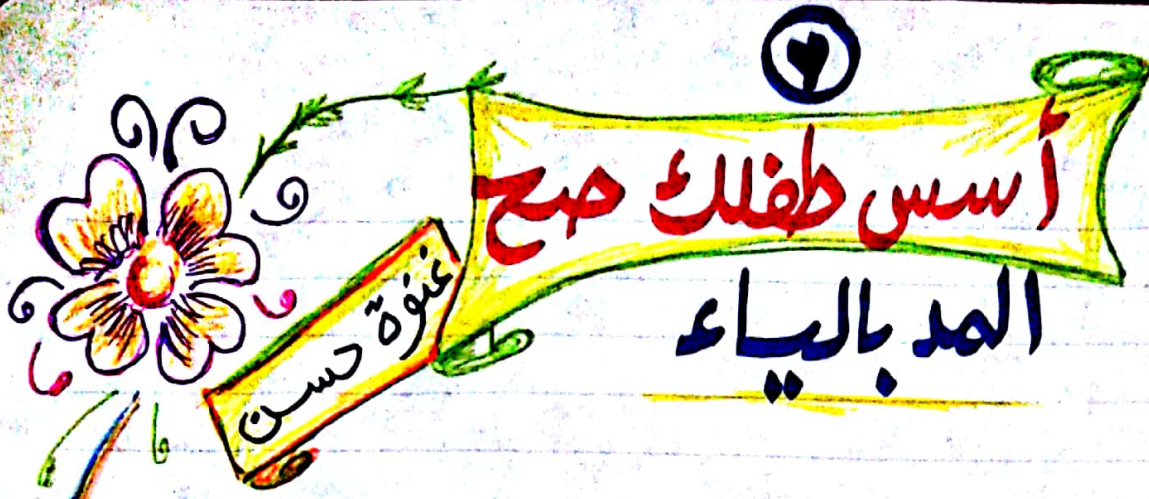 أسس طفلك صح
المد بالياء
غنوة حسن